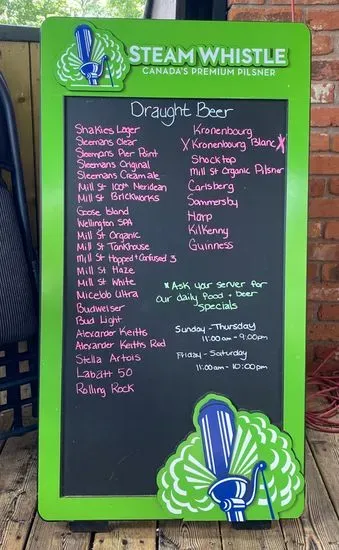 STEAM WHISTLE
CANADA'S PREMIUM PILSNER
Draught Beer
Shakies Lager
Sleemans Clear
Sleemans Pier Point
Sleemans Original
Sleemans Cream ale
Mill St 100th Meridean
Mill St Brickworks
Goose Island
Wellington SPA
Mill St Organic
Mill St Tankhouse
Mill St Hopped + Confused 3
Mill St Haze
Mill St White
Micelob Ultra
Budweiser
Bud Light
Alexander Keiths
Alexander Keiths Red
Stella Artois
Labatt 50
Rolling Rock
Kronenbourg
X Kronenbourg Blanc X
Shocktop
Mill St Organic Pilsner
Carlsberg
Sommersby
Harp
Kilkenny
Guinness
*Ask your server for
our daily food + beer
specials
Sunday - Thursday
11:00am - 9:00pm
Friday - Saturday
11:00am - 10:00pm